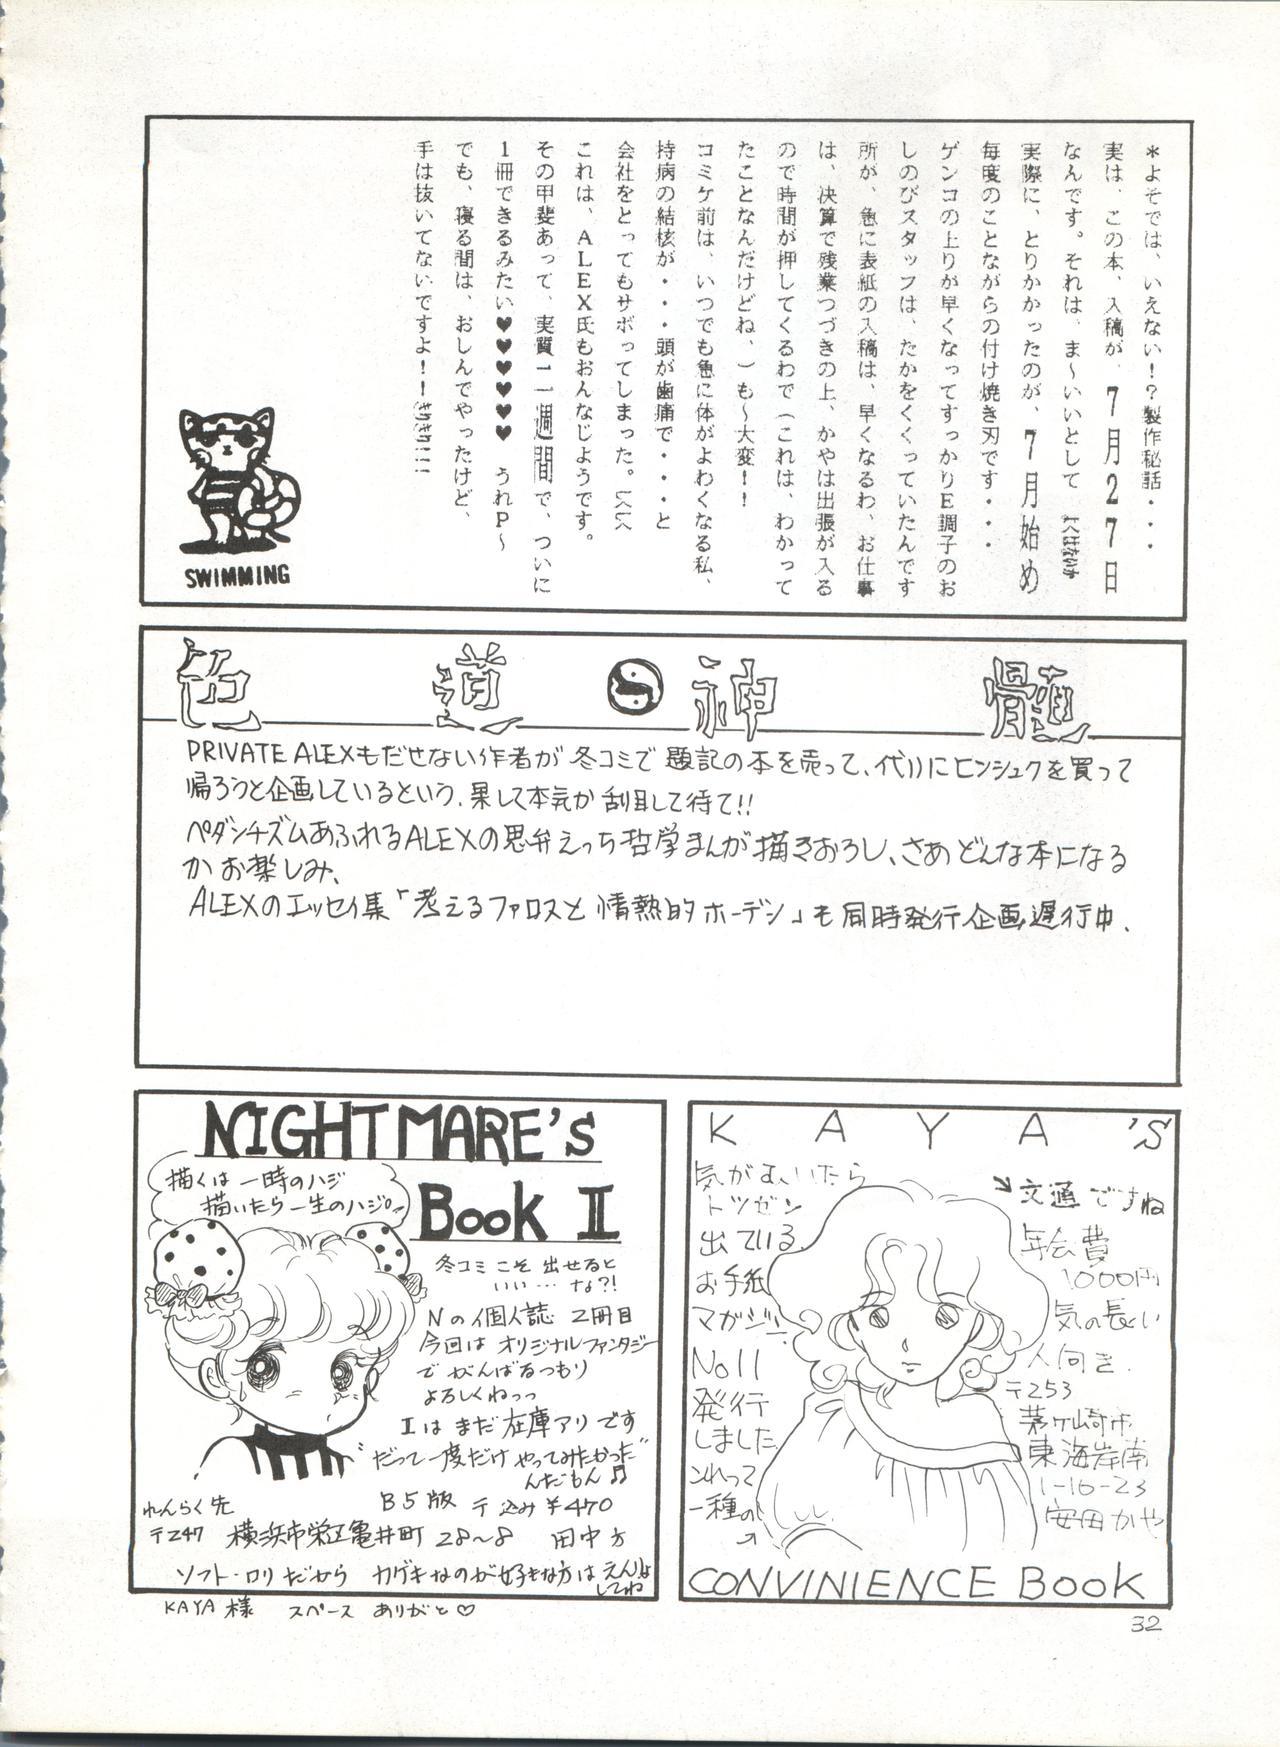 *よそでは、いえない！？製作秘話・・・
実は、この本、入稿が、7月27日
なんです。それは、ま～いいとして
実際に、とりかかったのが、7月始め
毎度のことながらの付け焼き刃です・・・
ゲンコの上りが早くなってすっかりE調子のお
しのびスタッフは、たかをくくっていたんです
所が、急に表紙の入稿は、早くなるわ、お仕事
は、決算で残業つづきの上、かやは出張が入る
ので時間が押してくるわで（これは、わかって
たことなんだけどね、）も～大変！！
コミケ前は、いつでも急に体がよわくなる私、
持病の結核が・・・頭が歯痛で・・・と
会社をとってもサボってしまった。
これは、ALEX氏もおんなじようです。
その甲斐あって、実質二週間で、ついに
1冊できるみたい♥♥♥♥♥♥ うれP～
でも、寝る間は、おしんでやったけど、
手は抜いてないですよ！！
SWIMMING
色道☯神髄
PRIVATE ALEXもだせない作者が冬コミで題記の本を売って、代りにヒンシュクを買って
帰ろうと企画しているという、果して本気か刮目して待て!!
ペダンチズムあふれるALEXの思弁えっち哲学まんが描きおろし、さあどんな本になる
かお楽しみ、
ALEXのエッセイ集「考えるファロスと情熱的ホーデン」も同時発行企画遅行中、
NIGHTMARE's
Book II
描くは一時のハジ
描いたら一生のハジ。
冬コミこそ出せると
いい…な?!
Nの個人誌 2冊目
今回はオリジナルファンタジー
でがんばるつもり
よろしくねっっ
Iはまだ在庫アリです
"だって一度だけやってみたかった"
んだもん♫
B5版 〒込み¥470
れんらく先
〒247 横浜市栄区亀井町28～8 田中方
ソフト・ロリだから カゲキなのが好きな方はえんりょ
してね
KAYA様 スペース ありがと♡
KAYA'S
気がむいたら
トツゼン
出ている
お手紙
マガジン
No11
発行
しました
これって
一種の
→文通ですね
年会費
1000円
気の長い
人向き.
〒253
茅ヶ崎市
東海岸南
1-10-23
安田かや
CONVINIENCE BOOK
32